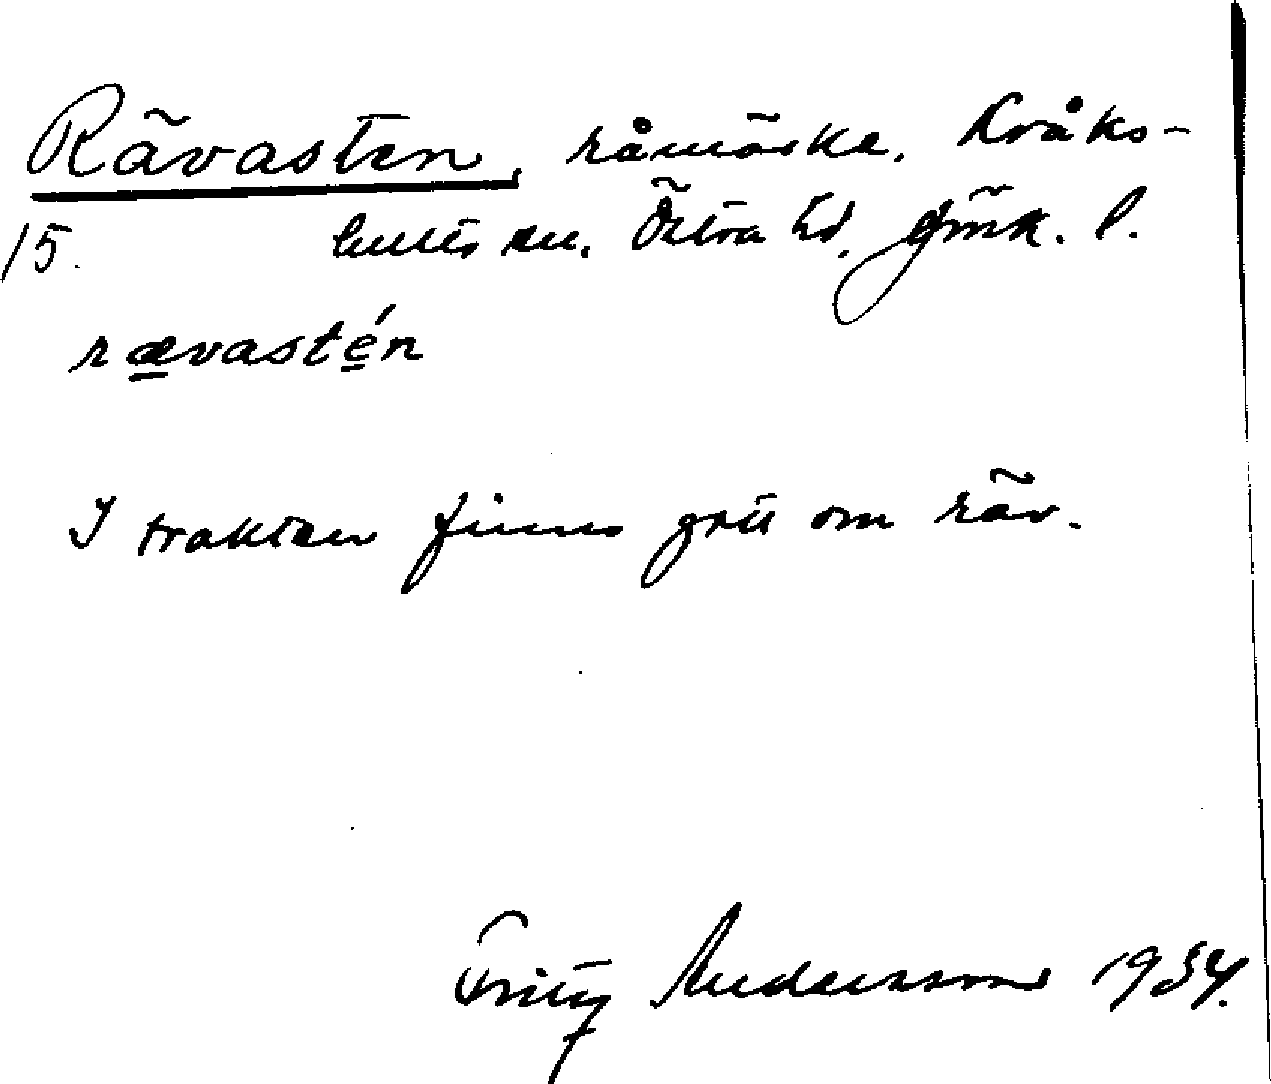 Rävasten, råmärke, Kråks-
15. hults sn. Östra hd. Jönk. l.
rævastén
I trakten finns gott om räv.
Fritz Andersson 1934.